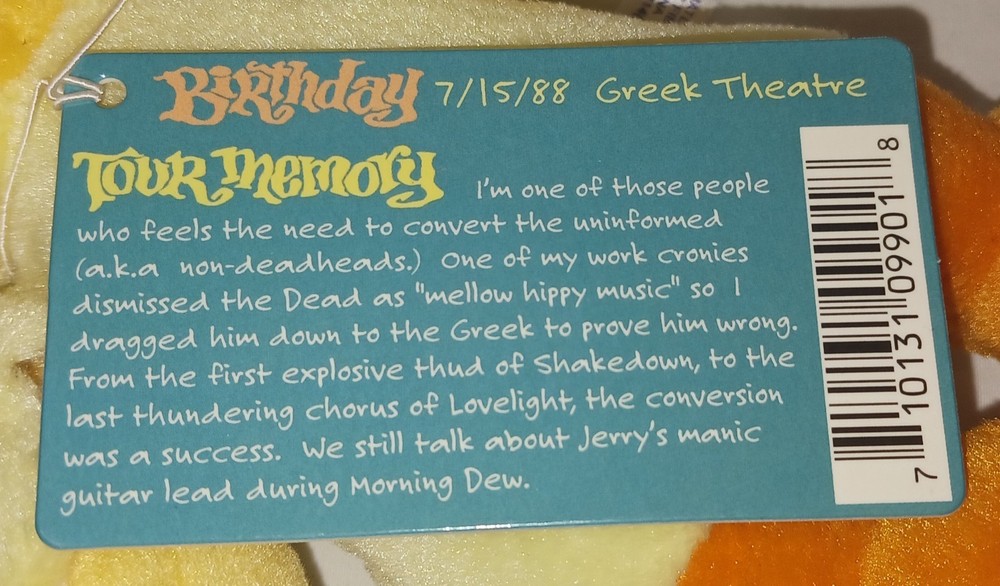 Birthday 7/15/88 Greek Theatre
Tour Memory I'm one of those people
who feels the need to convert the uninformed
(a.k.a non-deadheads.) One of my work cronies
dismissed the Dead as "mellow hippy music" so I
dragged him down to the Greek to prove him wrong.
From the first explosive thud of Shakedown, to the
last thundering chorus of Lovelight, the conversion
was a success. We still talk about Jerry's manic
guitar lead during Morning Dew.
7 10131 09901 8